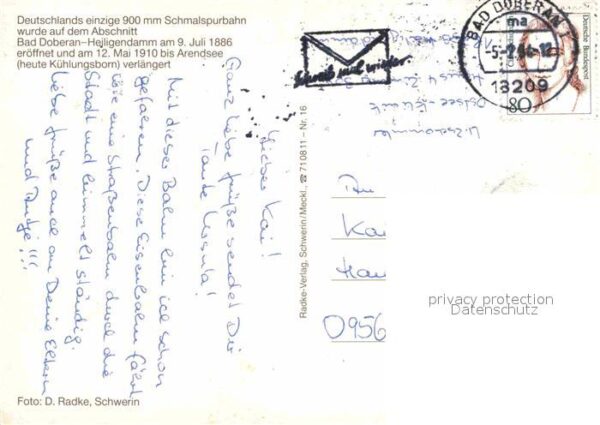 Deutschlands einzige 900 mm Schmalspurbahn
wurde auf dem Abschnitt
Bad Doberan–Heiligendamm am 9. Juli 1886
eröffnet und am 12. Mai 1910 bis Arendsee
(heute Kühlungsborn) verlängert
Lieber Kai!
Ganz liebe Grüße sendet Dir
Tante Ursula!
Mit dieser Bahn bin ich schon
gefahren. Diese Eisenbahn fährt
wie eine Straßenbahn durch die
Stadt und bimmelt ständig.
Liebe Grüße auch an Deine Eltern
und Antje!!!
Foto: D. Radke, Schwerin
Radke-Verlag, Schwerin/Meckl., ☎ 710811 – Nr. 16
Schreib mal wieder
BAD DOBERAN 1
ma
-5.-12
18209
Deutsche Bundespost
80
An
Ka
Ha
privacy protection
Datenschutz